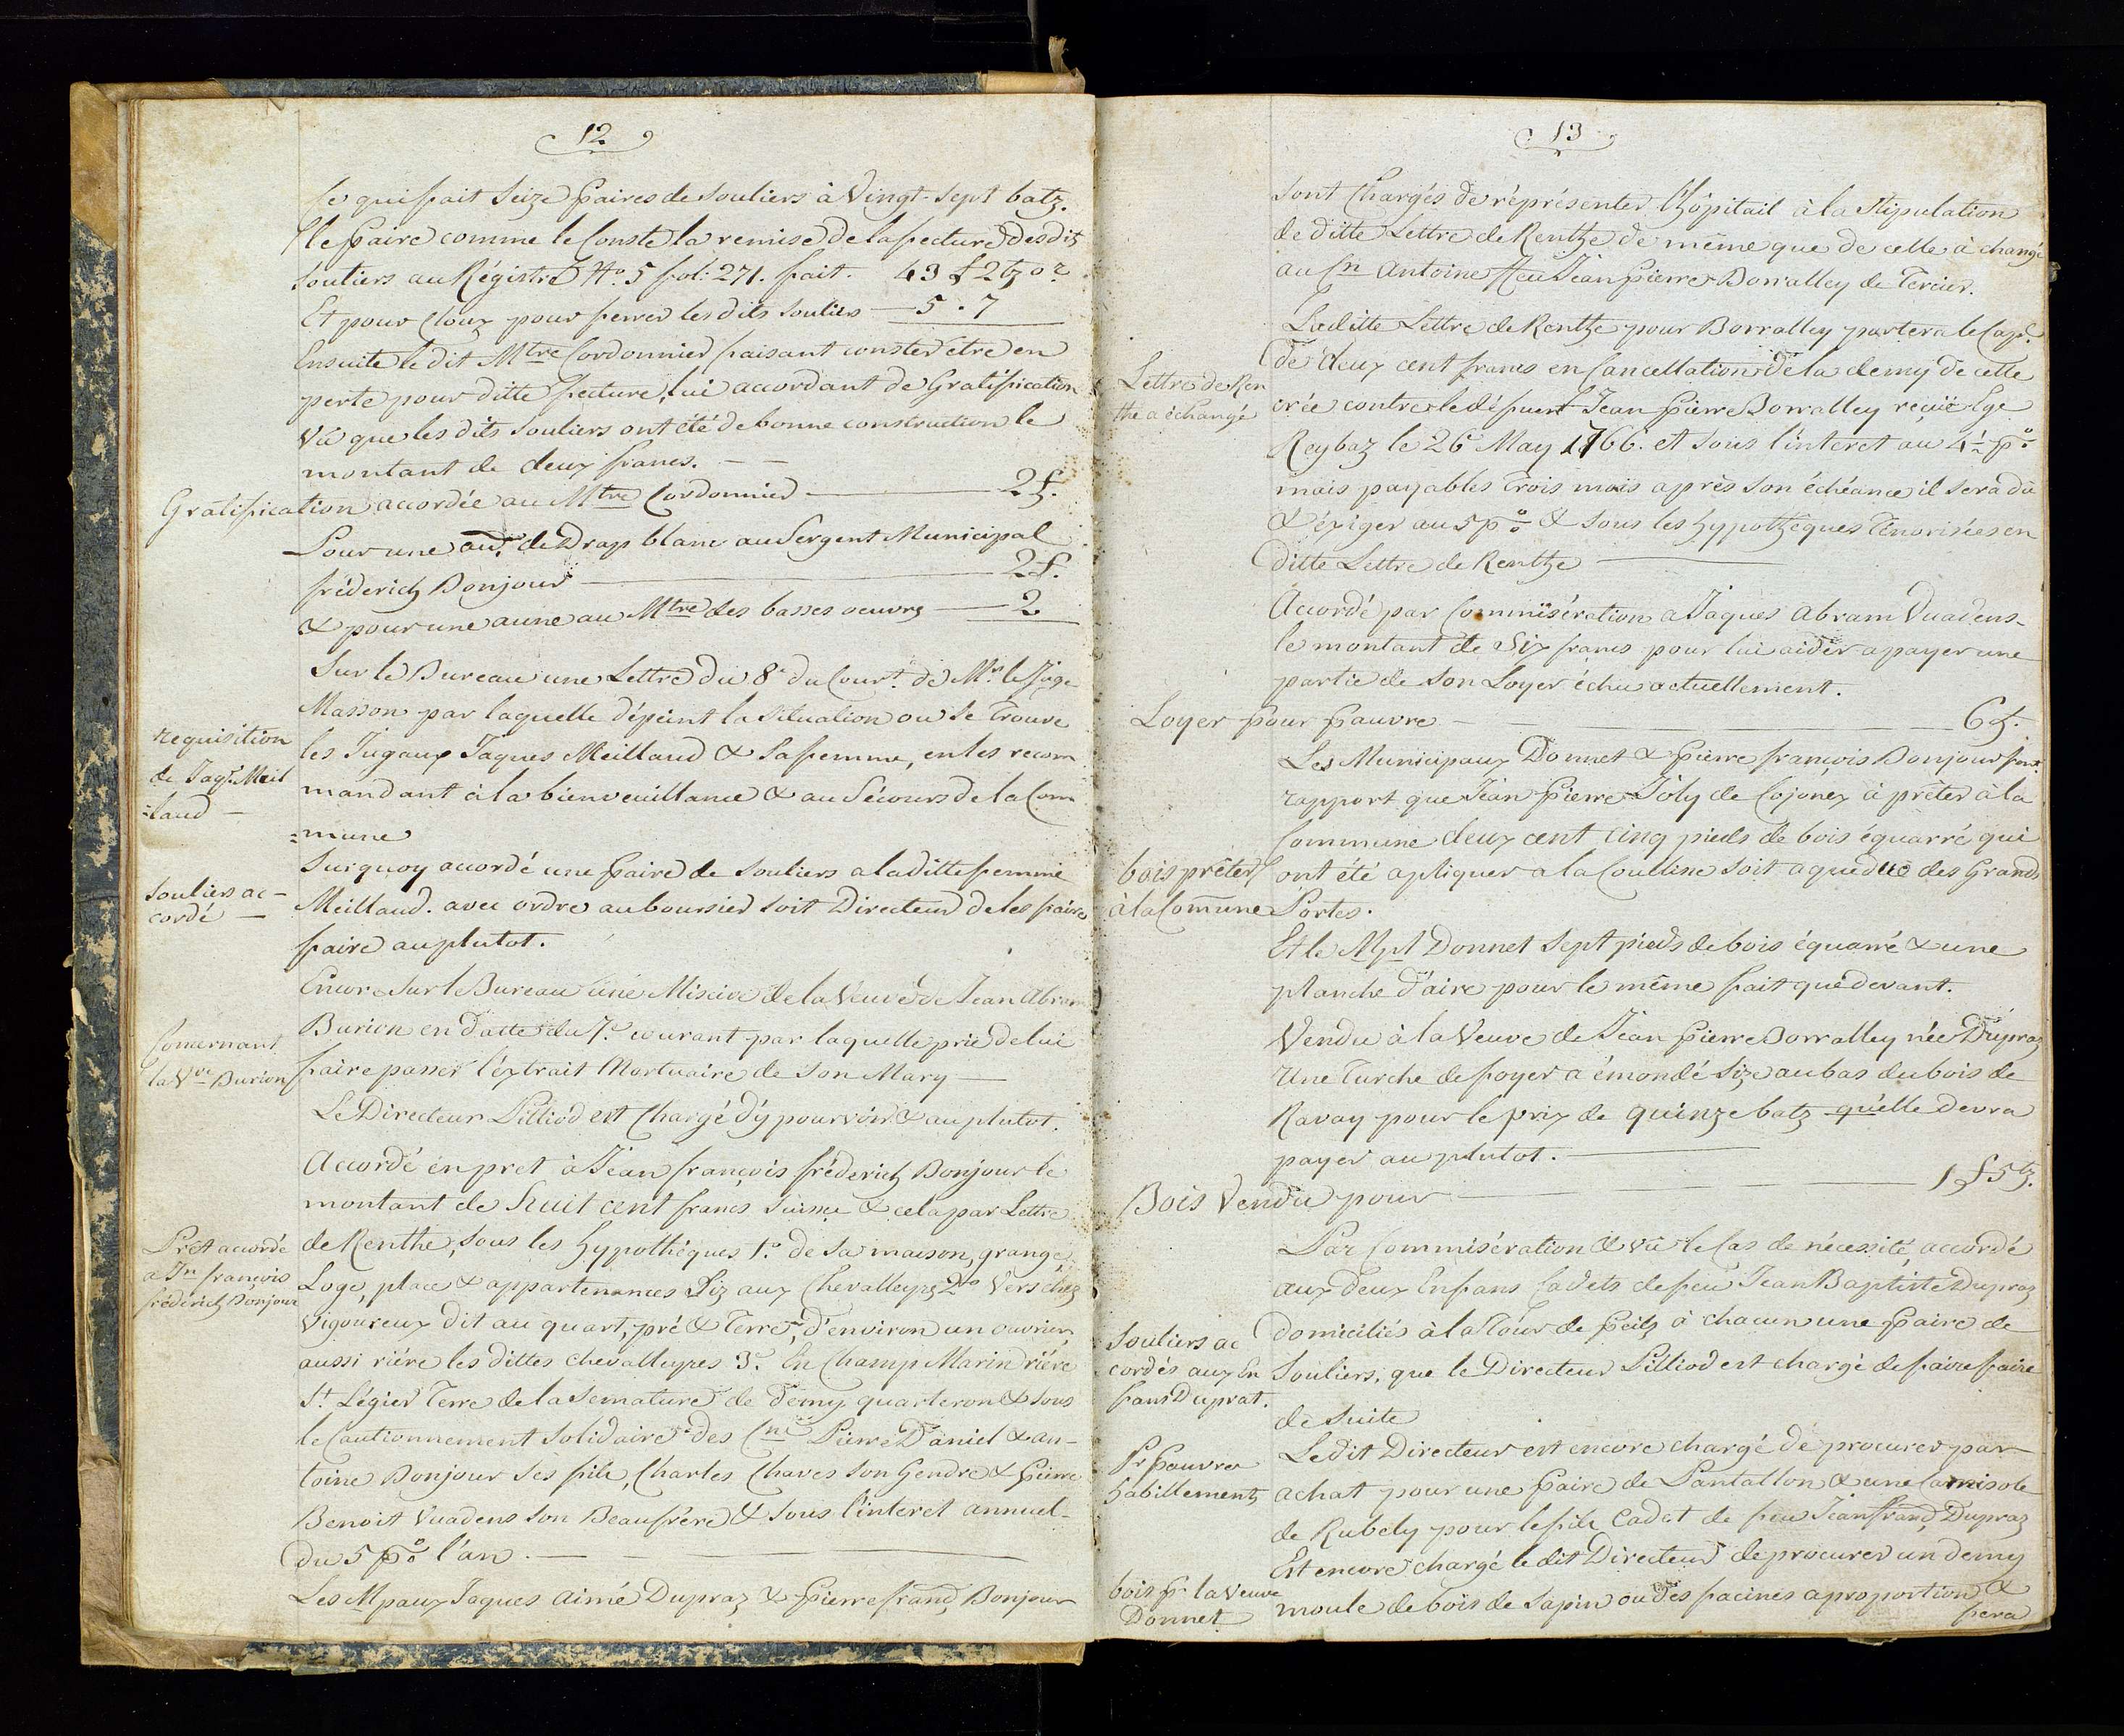 12
Ce qui fait Seize paires de Souliers à Vingt-Sept batz.
la paire comme le Conste la remise de la facture des dits
Souliers au Régistre No. 5 fol: 271. fait. 43 f 2 bz 0 r
Et pour Cloux pour ferrer les dits Souliers — 5 . 7
Ensuite le dit Mtre Cordonnier faisant conster être en
perte pour ditte facture, lui accordant de Gratification
Vû que les dits Souliers ont été de bonne construction le
montant de deux francs. — —
Gratification accordée au Mtre Cordonnier — 2 f.
Pour une aue. de Drap blanc au Sergent Municipal
fréderich Bonjour — 2 f.
& pour une aune au Mtre des basses oeuvres — 2
Sur le Bureau une Lettre du 8e du Court. de Mr. le Juge
Masson par laquelle dépeint la Situation ou se Trouve
requisition
de Jaqs. Meil
=laud —
les Jugaux Jaques Meillaud & Sa femme, en les recom
mandant à la bienveuillance & au Sécours de la Com
=mune
Surquoy accordé une paire de Souliers a la ditte femme
Souliers ac-
cordé —
Meillaud. avec ordre au boursier soit Directeur de les faire
faire au plutot.
Encore Sur le Bureau une Miscive de la Veuve de Jean Abram
Burion en datte du 7e. courant par laquelle prie de lui
Concernant
la Vve Burion
faire passer l'extrait Mortuaire de Son Mary —
Le Directeur Pilliod est Chargé d'y pourvoir & au plutot.
Accordé en pret à Jean françois fréderich Bonjour le
montant de huit cent francs Suisse & cela par Lettre
Prêt accordé
a Jn françois
fréderich Bonjour
de Renthe, Sous les hypothéques 1o. de Sa maison, grange,
Loge, place & appartenances Siz aux Chevalleyres 2do Vers chez
Vigoureux dit au quart, pré & Terre, d'environ un ouvrier
aussi riére les dittes chevalleyres 3o. En Champ Marin riére
St. Légier Terre de la Semature de demy quarteron & sous
le Cautionnement Solidaire des Cns Pierre Daniel & an-
toine Bonjour Ses fils, Charles Chaves son Gendre & pierre
Benoit Vuadens son Beaufrére & sous l'interet annuel-
du 5 po/o l'an. —
Les Mpaux Jaques Aimé Dupraz & Pierre frand. Bonjour
13
Sont Chargés de réprésenter l'hópitail à la Stipulation
de ditte Lettre de Renthe de même que de celle à changé
au Cn Antoine ffeu Jean Pierre Borralley de Tercier.
La ditte Lettre de Renthe pour Borralley portera le Capl.
Lettre de Ren
the a échangé
de deux cent francs en Cancellation de la demy de celle
crée contre le défunt Jean pierre Borralley reçüe Egе
Reybaz le 26e May 1766. et sous l'interet au 4½ po/o
mais payables Trois mois après Son échéance il sera dû
& éxiger au 5 po/o & sous les hypothéques Ténorisées en
ditte Lettre de Renthe —
Accordé par Commisération a Jaques Abram Vuadens
le montant de Six francs pour lui aider a payer une
partie de Son Loyer échu actuellement.
Loyer pour pauvre — 6 f.
Les Municipaux Donnet & pierre françois Bonjour font
rapport que Jean pierre Joly de Cojonex à prêter à la
Commune deux cent cinq pieds de bois équarré qui
bois prêter
à la Commune
ont été apliquer a la Coulline Soit aqueduc des Grands
Portes.
Et le Mpl Donnet Sept pieds de bois équarré & une
planche d'aire pour le même fait que devant.
Vendu à la Veuve de Jean pierre Borralley née Dupraz
Une Turche de foyer a émondé Size au bas du bois de
Ravay pour le prix de quinze batz qu'elle devra
payer au plutot. —
Bois Vendu pour — 1 f 5 bz.
Par Commisération & vû le Cas de nécessité, accordé
aux deux Enfans Cadets de feu Jean Baptiste Dupraz
Souliers ac
cordés aux En
fans Duprat.
domiciliés à la Tour de peilz à chacun une paire de
Souliers, que le Directeur Pilliod est chargé de faire faire
de Suite
Le dit Directeur est encore chargé de procurer par
Pr pauvres
habillements
achat pour une paire de Pantallon & une Camisole
de Rubely pour le fils Cadet de feu Jean frand. Dupraz
Est encore chargé le dit Directeur de procurer un demy
bois pr. la Veuve
Donnet
moule de bois de Sapin ou des facines a proportion &
fera